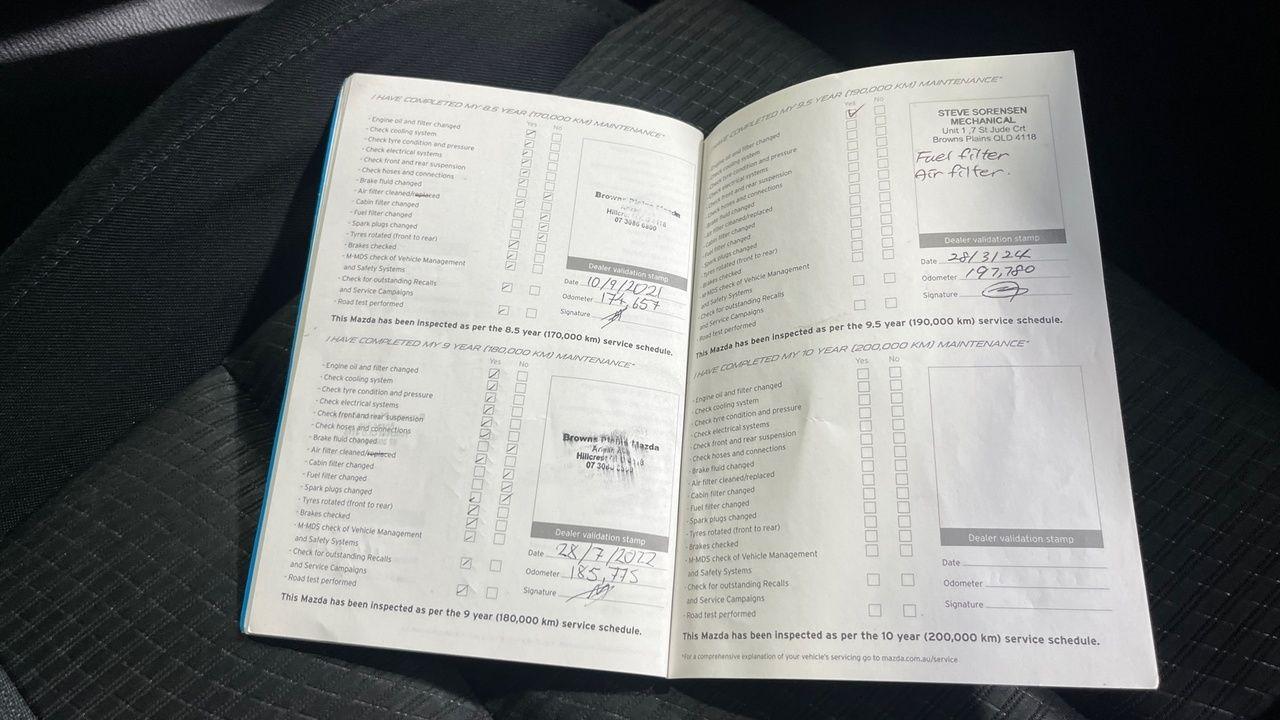 I HAVE COMPLETED MY 8.5 YEAR (170,000 KM) MAINTENANCE*
Yes No
- Engine oil and filter changed
- Check cooling system
- Check tyre condition and pressure
- Check electrical systems
- Check front and rear suspension
- Check hoses and connections
- Brake fluid changed
- Air filter cleaned/replaced
- Cabin filter changed
- Fuel filter changed
- Spark plugs changed
- Tyres rotated (front to rear)
- Brakes checked
- M-MDS check of Vehicle Management
and Safety Systems
- Check for outstanding Recalls
and Service Campaigns
- Road test performed
Browns Plains Mazda
Hillcrest 4118
07 3086 6800
Dealer validation stamp
Date 10/9/2021
Odometer 174,657
Signature
This Mazda has been inspected as per the 8.5 year (170,000 km) service schedule.
I HAVE COMPLETED MY 9 YEAR (180,000 KM) MAINTENANCE*
Yes No
- Engine oil and filter changed
- Check cooling system
- Check tyre condition and pressure
- Check electrical systems
- Check front and rear suspension
- Check hoses and connections
- Brake fluid changed
- Air filter cleaned/replaced
- Cabin filter changed
- Fuel filter changed
- Spark plugs changed
- Tyres rotated (front to rear)
- Brakes checked
- M-MDS check of Vehicle Management
and Safety Systems
- Check for outstanding Recalls
and Service Campaigns
- Road test performed
Browns Plains Mazda
Hillcrest
07
Dealer validation stamp
Date 28/7/2022
Odometer 185,775
Signature
This Mazda has been inspected as per the 9 year (180,000 km) service schedule.
I HAVE COMPLETED MY 9.5 YEAR (190,000 KM) MAINTENANCE*
Yes No
- Engine oil and filter changed
- Check cooling system
- Check tyre condition and pressure
- Check electrical systems
- Check front and rear suspension
- Check hoses and connections
- Brake fluid changed
- Air filter cleaned/replaced
- Cabin filter changed
- Fuel filter changed
- Spark plugs changed
- Tyres rotated (front to rear)
- Brakes checked
- M-MDS check of Vehicle Management
and Safety Systems
- Check for outstanding Recalls
and Service Campaigns
- Road test performed
STEVE SORENSEN
MECHANICAL
Unit 1 ,7 St Jude Crt
Browns Plains QLD 4118
Fuel filter
Air filter.
Dealer validation stamp
Date 28/3/24
Odometer 197,780
Signature
This Mazda has been inspected as per the 9.5 year (190,000 km) service schedule.
I HAVE COMPLETED MY 10 YEAR (200,000 KM) MAINTENANCE*
Yes No
- Engine oil and filter changed
- Check cooling system
- Check tyre condition and pressure
- Check electrical systems
- Check front and rear suspension
- Check hoses and connections
- Brake fluid changed
- Air filter cleaned/replaced
- Cabin filter changed
- Fuel filter changed
- Spark plugs changed
- Tyres rotated (front to rear)
- Brakes checked
- M-MDS check of Vehicle Management
and Safety Systems
- Check for outstanding Recalls
and Service Campaigns
- Road test performed
Dealer validation stamp
Date
Odometer
Signature
This Mazda has been inspected as per the 10 year (200,000 km) service schedule.
*For a comprehensive explanation of your vehicle's servicing go to mazda.com.au/service